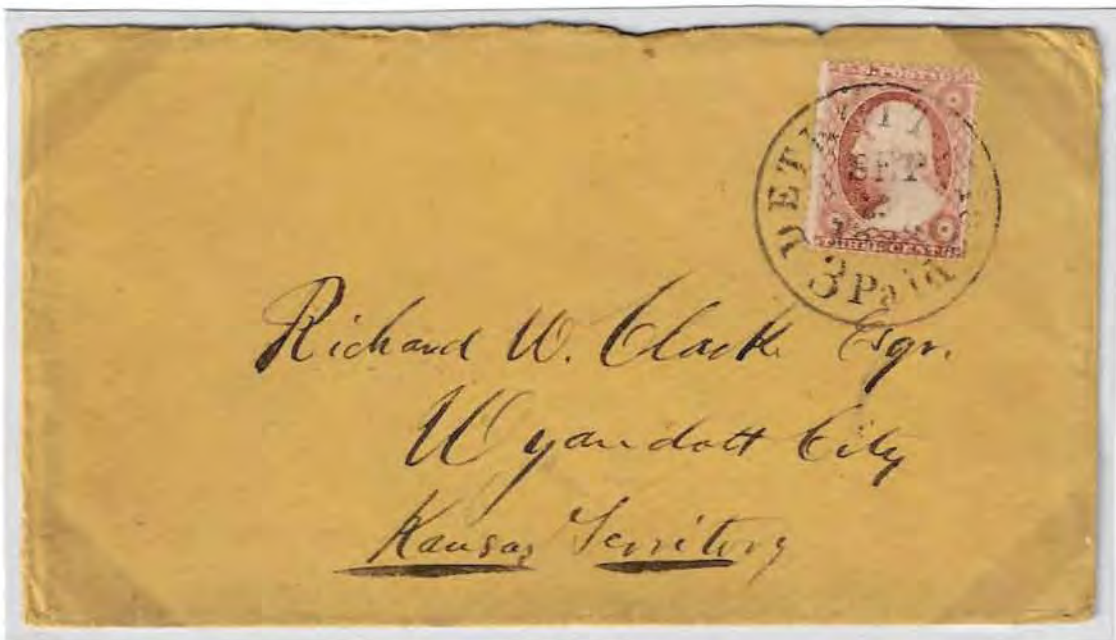 SEP
3 Paid
THREE CENTS
Richard W. Clark Esqr.
Wyandott City
Kansas Territory